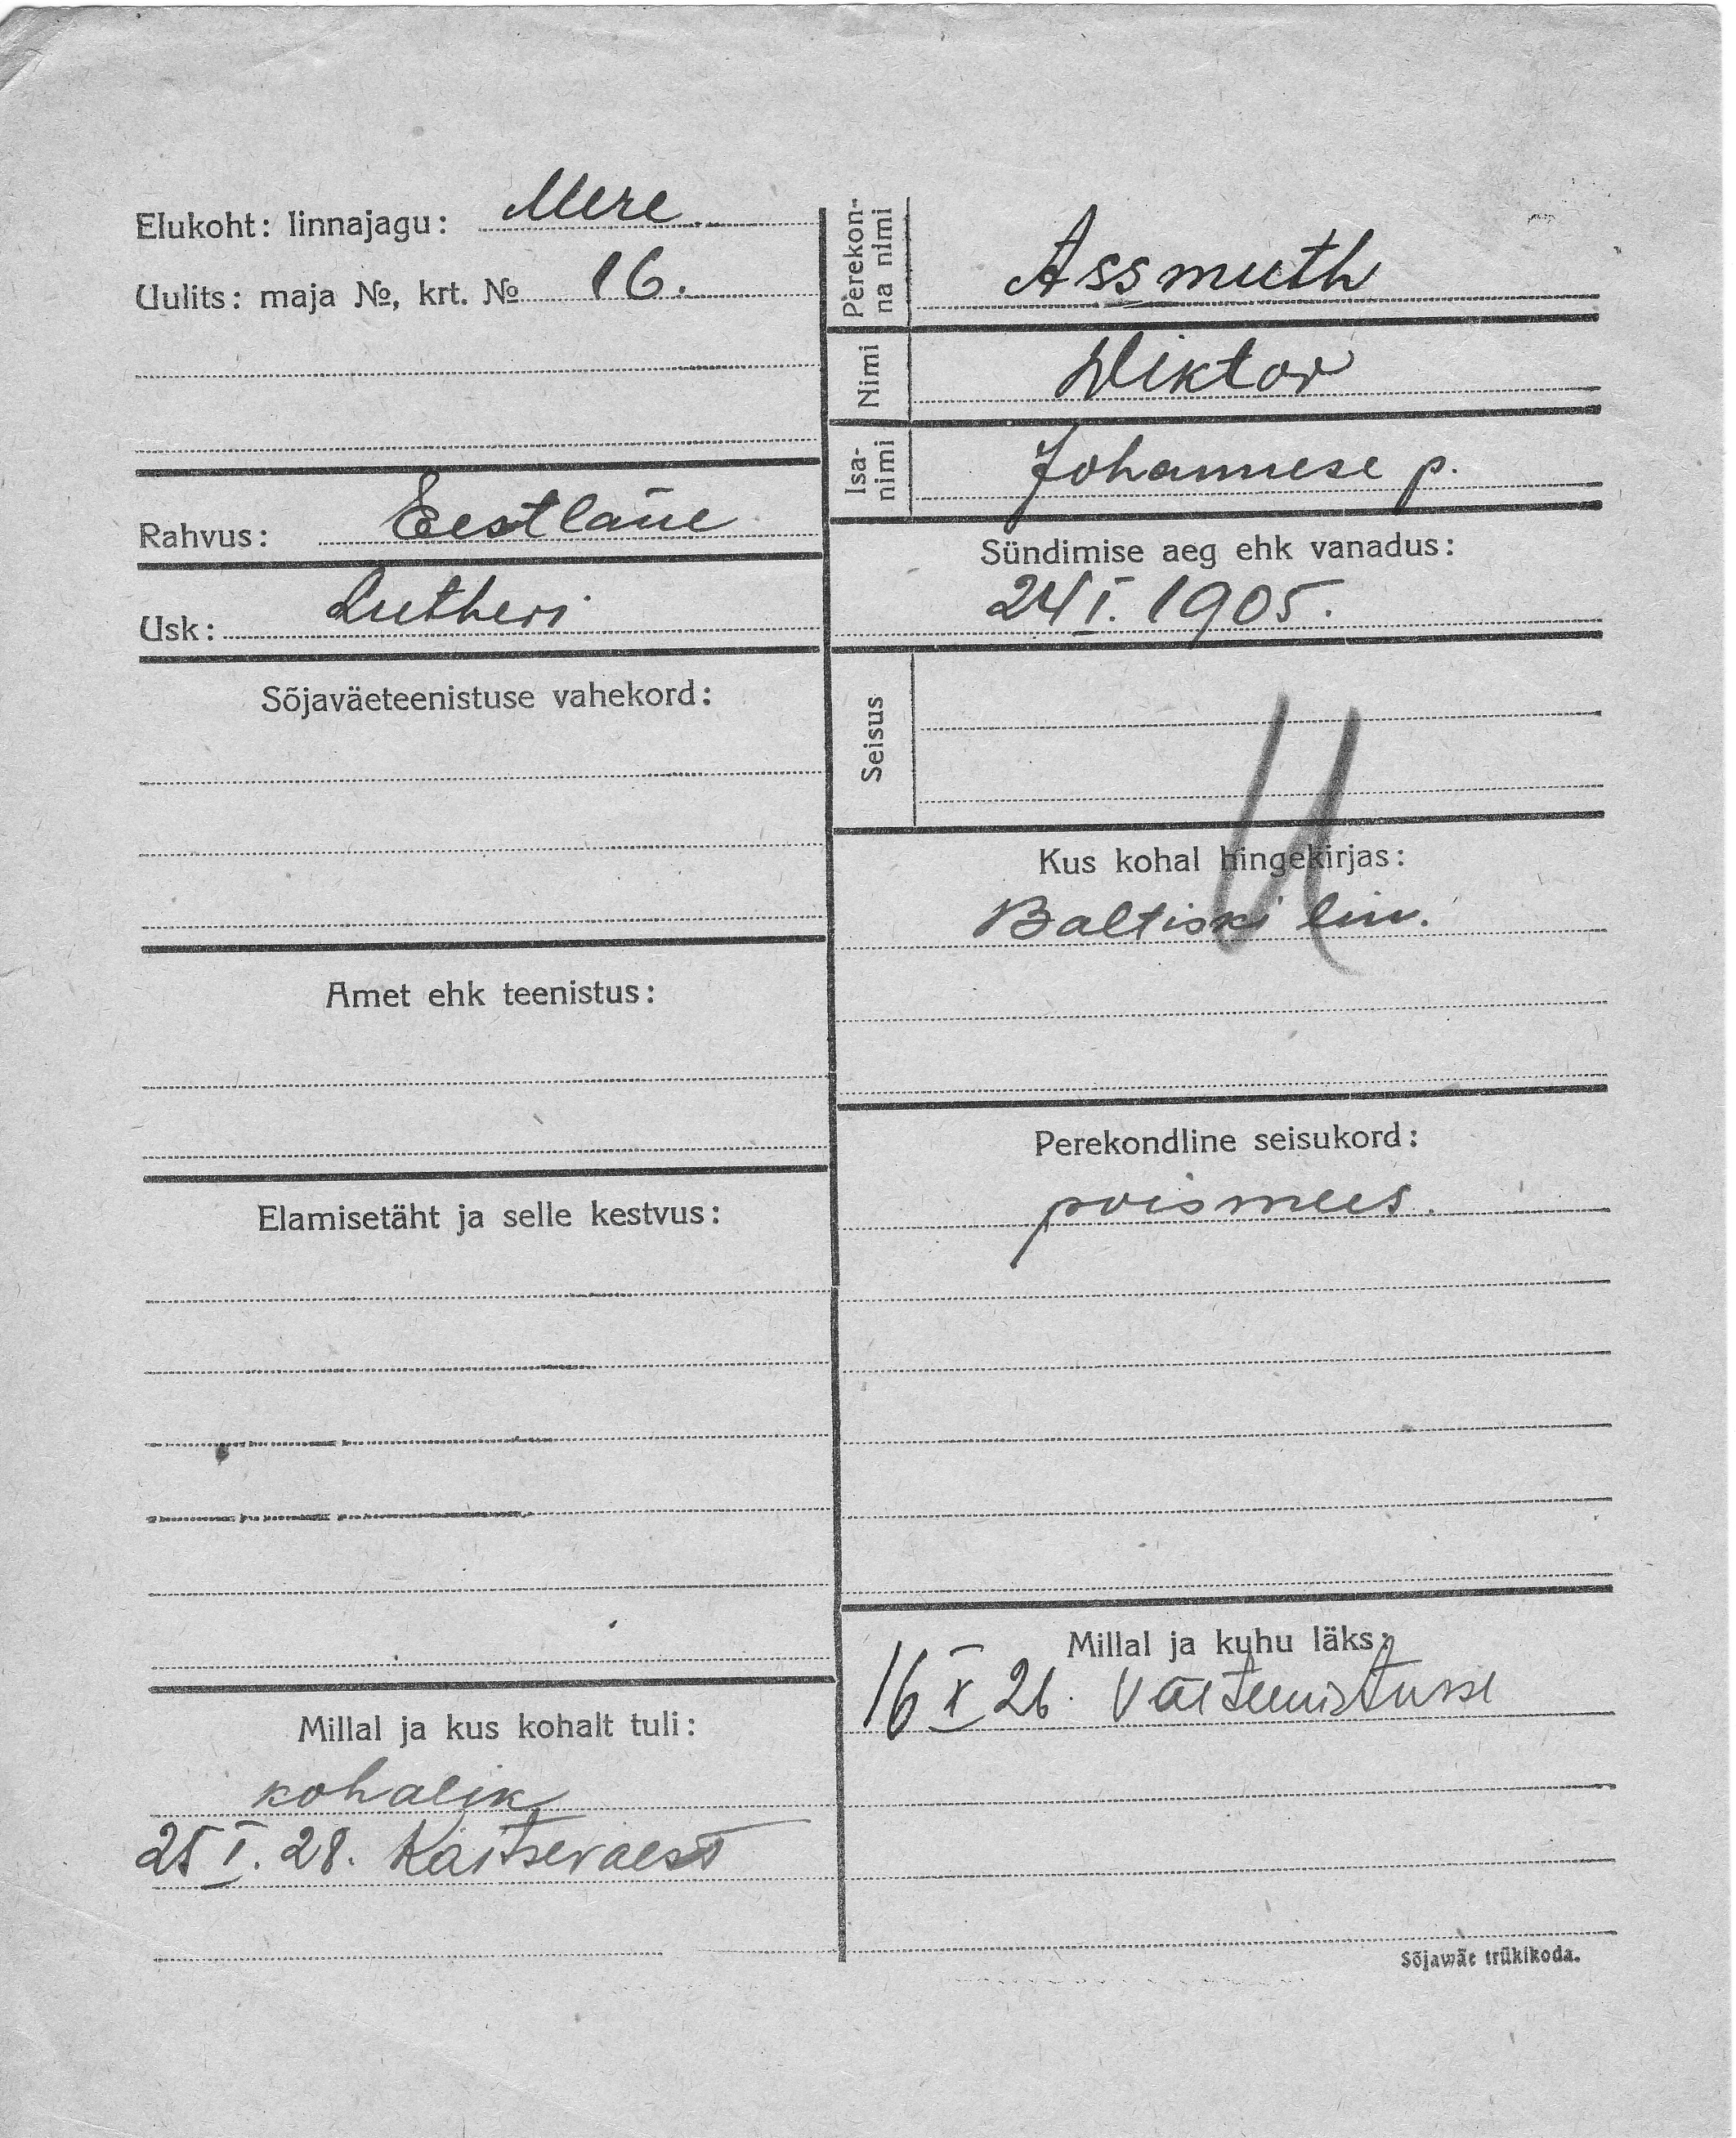 Elukoht: linnajagu: Mere
Uulits: maja №, krt. № 16.
Rahvus: Eestlane
Usk: Lutheri
Sõjaväeteenistuse vahekord:
Amet ehk teenistus:
Elamisetäht ja selle kestvus:
Millal ja kus kohalt tuli:
kohalik
25 I. 28. Kaitseväest
Perekon-
na nimi
Assmuth
Nimi
Wiktor
Isa-
nimi
Johannese p.
Sündimise aeg ehk vanadus:
24 I. 1905.
Seisus
Kus kohal hingekirjas:
Baltiski lin.
Perekondline seisukord:
poismees.
Millal ja kuhu läks:
16 X 26. Väeteenistusse
Sõjawäe trükikoda.